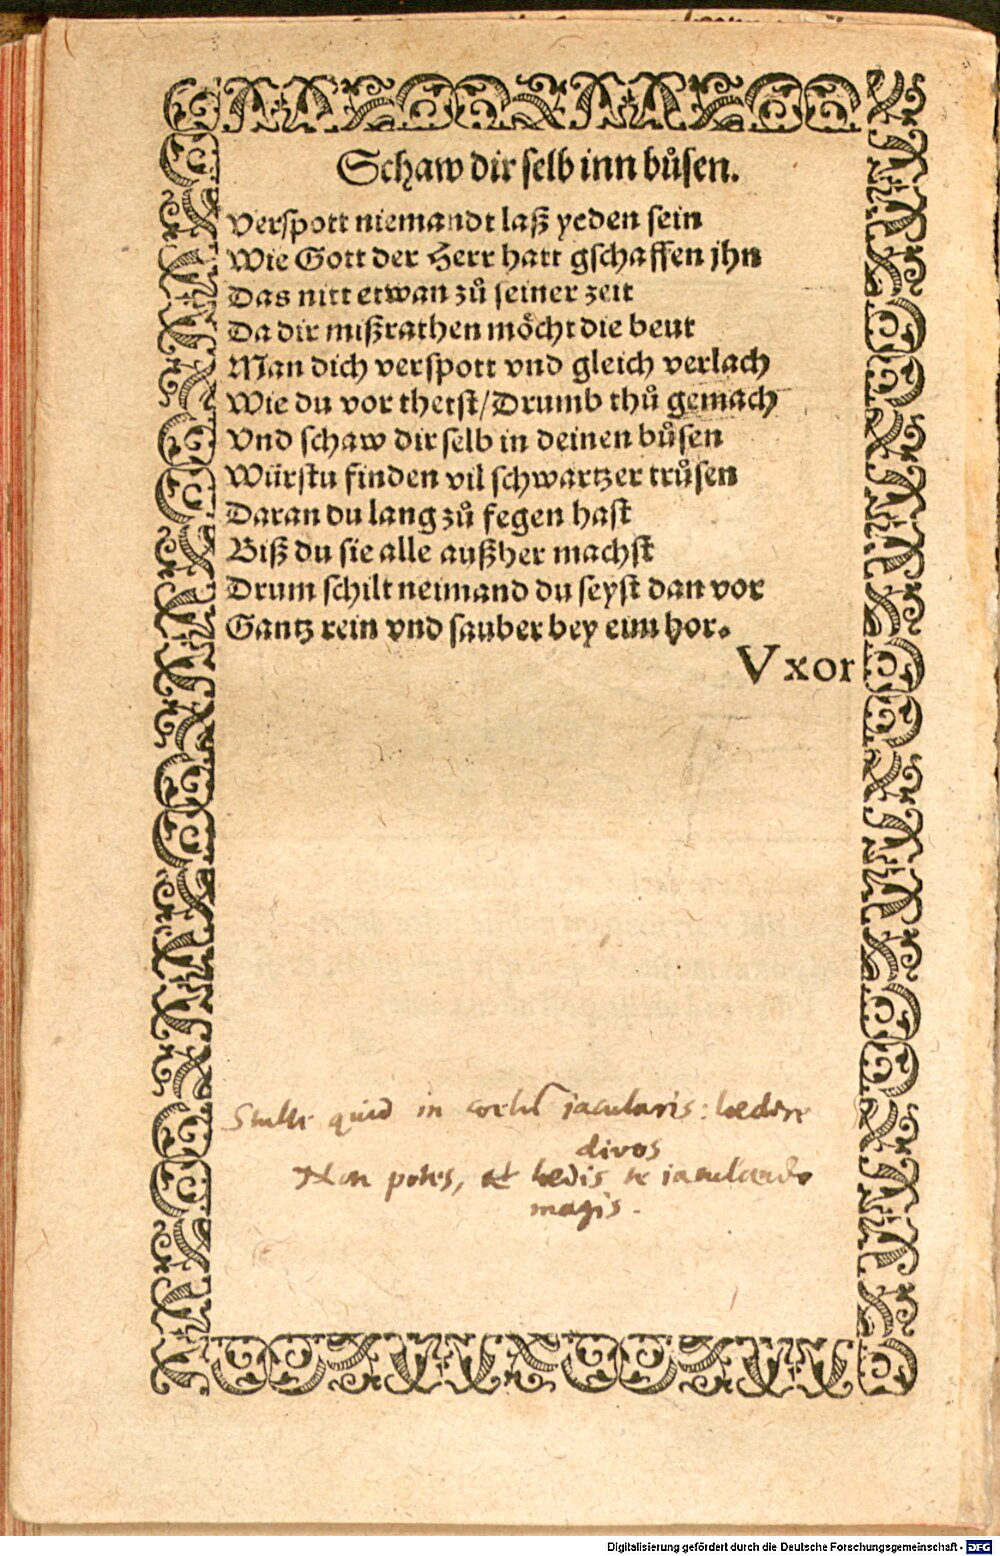 Schaw dir selb inn bůsen.
Verspott niemandt laß yeden sein
Wie Gott der Herr hatt gschaffen jhn
Das nitt etwan zů seiner zeit
Da dir mißrathen möcht die beut
Man dich verspott vnd gleich verlach
Wie du vor thetst/Drumb thů gemach
Vnd schaw dir selb in deinen bůsen
Würstu finden vil schwartzer trůsen
Daran du lang zů fegen hast
Biß du sie alle außher machst
Drum schilt neimand du seyst dan vor
Gantz rein vnd sauber bey eim hor.
Vxor
Stulte quid in coelū iacularis: lædere
divos
Non potes, et lædis te iaculando
magis.
Digitalisierung gefördert durch die Deutsche Forschungsgemeinschaft - DFG